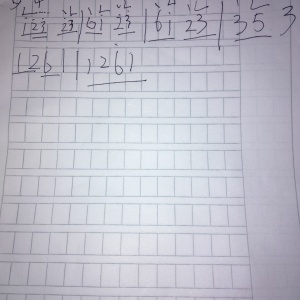 123 23 | 61 23 | 61 23 | 35 3
126 | 1261